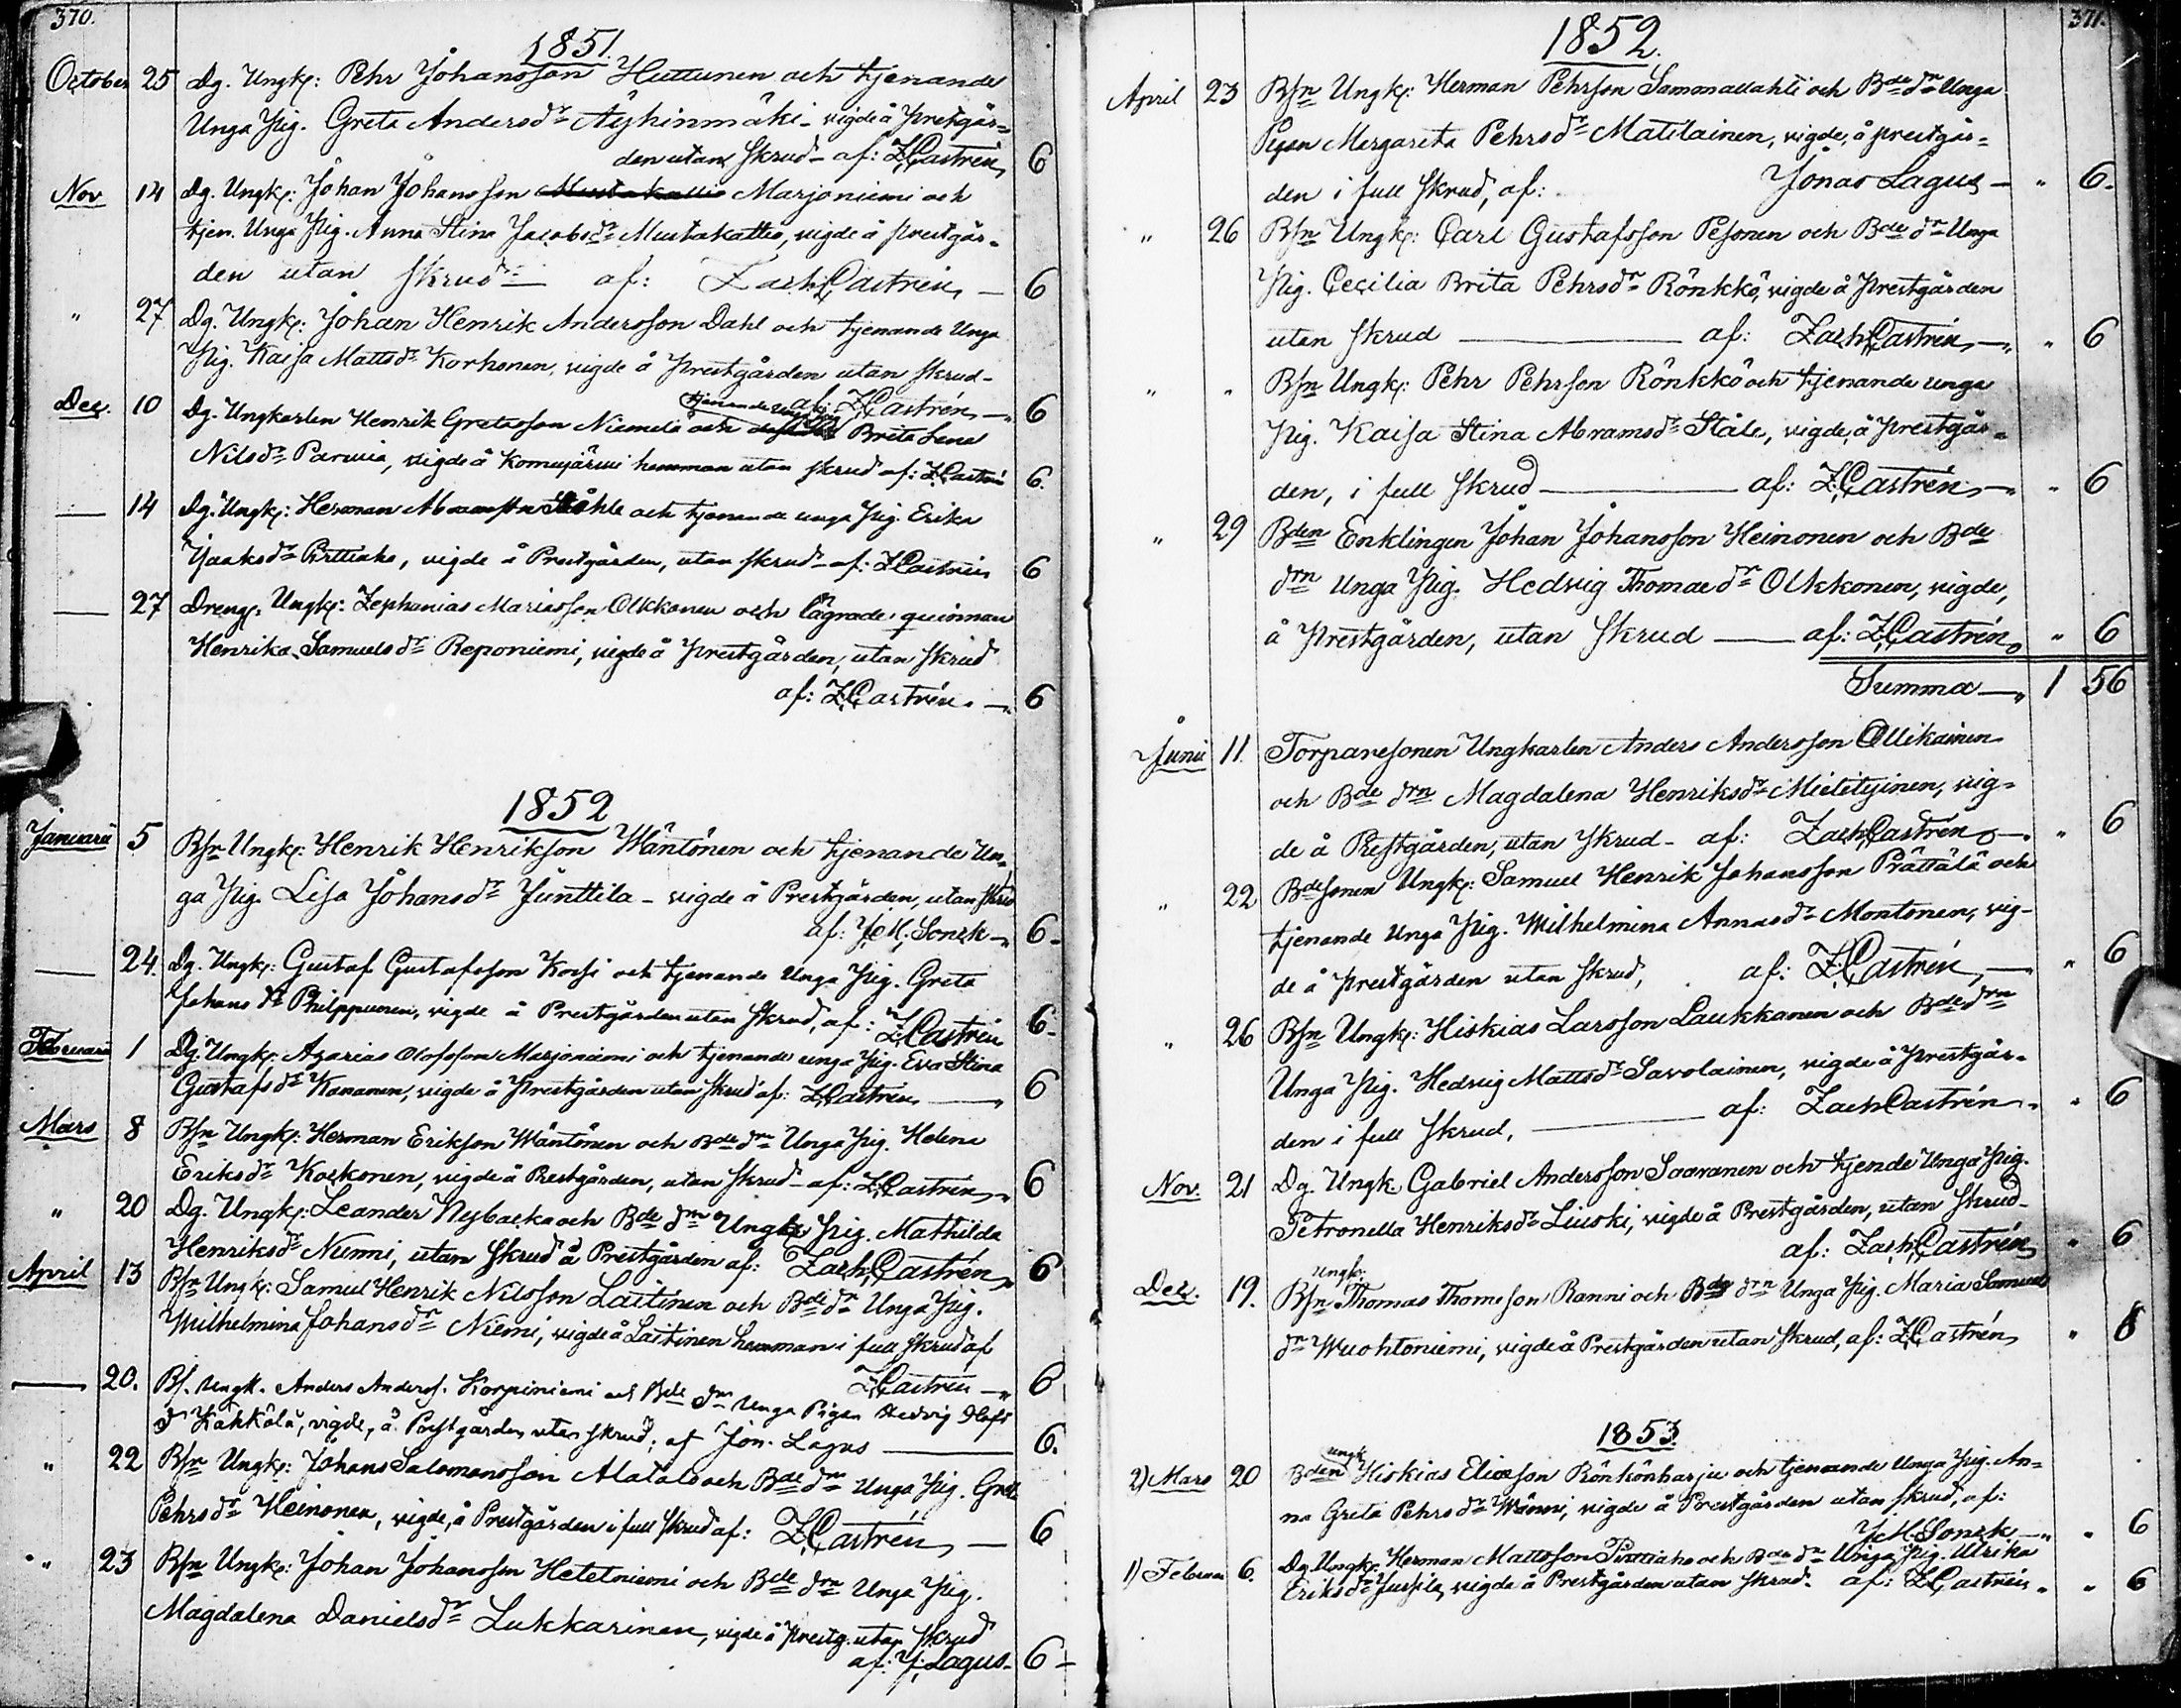 370.
1851.
October 25 Dg. Ungk: Pehr Johansson Huttunen och tjenande
Unga Pig. Greta Andersdr Äyhinmäki – vigde å Prestgår=
den utan skrud – af: Z. Castrén, 6
Nov 14 Dg. Ungk: Johan Johansson Mustakallio Marjoniemi och
tjen. Unga Pig. Anna Stina Jacobsdr Mustakallio, vigde å prestgår=
den utan skrud — af: Zach. Castrén, — 6
" 27 Dg. Ungk: Johan Henrik Andersson Dahl och tjenande Unga
Pig. Kaisa Mattsdr Korhonen, vigde å Prestgården utan skrud –
af: Z. Castrén — 6
Dec. 10 Dg. Ungkarlen Henrik Gretasson Niemelä och tjenande unga Pig Brita Lena
Nilsdr Parvia, vigde å Komujärvi hemman utan skrud af: Z. Castrén 6.
— 14 Dg. Ungk: Herman Abramsson Ståhle och tjenande unga Pig. Erika
Jaaksdr Pirttiaho, vigde å Prestgården, utan skrud – af: Z. Castrén 6
— 27 Dreng. Ungk: Zephanias Mariasson Olkkonen och lägrade qvinnan
Henrika Samuelsdr Reponiemi, vigde å Prestgården, utan skrud
af: Z. Castrén. — 6
1852
Januarii 5 Bsn Ungk: Henrik Henrikson Wäntönen och tjenande Un=
ga Pig. Lisa Johansdr Junttila – vigde å Prestgården, utan skrud
af: J. M. Sonck — 6 –
— 24. Dg. Ungk: Gustaf Gustafsson Korsi och tjenande Unga Pig. Greta
Johans dr Philppunen, vigde å Prestgården utan skrud, af: Z. Castrén 6 –
Februarii 1 Dg. Ungk: Azarias Olofsson Marjoniemi och tjenande unga Pig. Eva Stina
Gustafsdr Kananen, vigde å Prestgården utan skrud af: Z. Castrén — 6
Mars 8 Bsn Ungk: Herman Erikson Wäntönen och Bde drn Unga Pig. Helena
Eriksdr Koskonen, vigde å Prestgården, utan skrud – af: Z. Castrén 6
" 20 Dg. Ungk: Leander Nybacka och Bde drn Unga Pig. Mathilda
Henriksdr Nurmi, utan skrud å Prestgården af: Zach. Castrén 6
April 13 Bsn Ungk: Samuel Henrik Nilsson Laitinen och Bde drn Unga Pig.
Wilhelmina Johansdr Niemi, vigde å Laitinen hemman i full skrud af
Z. Castrén — 6
— 20. Bs. Ungk. Anders Anderss. Korpiniemi och Bde drn Unga Pigan Hedvig Olofs
dr Käkkölä, vigde, å Prestgården utan skrud; af Jon. Lagus — 6.
" 22 Bsn Ungk: Johans Salomonsson Alatalo och Bde drn Unga Pig. Greta
Pehrsdr Heinonen, vigde, å Prestgården i full skrud af: Z. Castrén — 6
" 23 Bsn Ungk: Johan Johansson Heteniemi och Bde drn Unga Pig.
Magdalena Danielsdr Lukkarinen, vigde å prestg. utan skrud
af: J. Lagus – 6 –
371.
1852.
April 23 Bsn Ungk: Herman Pehrson Sammallahti och Bde drn Unga
Pigan Margareta Pehrsdr Matilainen, vigde, å prestgår=
den i full skrud, af: Jonas Lagus – " 6.
" 26 Bsn Ungk: Carl Gustafsson Pesonen och Bde drn Unga
Pig. Cecilia Brita Pehrsdr Rönkkö, vigde å Prestgården
utan skrud — af: Zach. Castrén — " 6
" " Bsn Ungk: Pehr Pehrson Rönkkö och tjenande unga
Pig. Kaisa Stina Abramsdr Ståle, vigde, å Prestgår=
den, i full skrud — af: Z. Castrén — " 6
" 29 Bden Enklingen Johan Johansson Heinonen och Bde
drn Unga Pig. Hedvig Thomae dr Olkkonen, vigde,
å Prestgården, utan skrud — af: Z. Castrén " 6
Summa — 1 56
Junii 11. Torparesonen Ungkarlen Anders Andersson Ollikainen
och Bde drn Magdalena Henriksdr Mieletyinen, vig=
de å Prestgården, utan skrud – af: Zach. Castrén — " 6
" 22 Bdesonen Ungk: Samuel Henrik Johansson Prättälä och
tjenande Unga Pig. Wilhelmina Annasdr Montonen, vig=
de å prestgården utan skrud, af: Z. Castrén, — " 6
" 26 Bsn Ungk: Hiskias Larsson Laukkanen och Bde drn
Unga Pig. Hedvig Mattsdr Savolainen, vigde å Prestgår=
den i full skrud, — af: Zach Castrén " 6
Nov. 21 Dg. Ungk. Gabriel Andersson Saavanen och tjende Unga Pig.
Petronella Henriksdr Liuski, vigde å Prestgården, utan skrud –
af: Zach. Castrén " 6
Dec. 19. Bsn Ungk: Thomas Thomeson Ranni och Bde drn Unga Pig. Maria Samuels
dr Wuohtoniemi, vigde å Prestgården utan skrud, af: Z. Castrén " 6
1853.
2) Mars 20 Bden Ungk Hiskias Eliasson Rönkönharju och tjenande Unga Pig. An=
na Greta Pehrsdr Wänni, vigde å Prestgården utan skrud, af:
J. M. Sonck — " 6
1) Februari 6. Dg. Ungk. Herman Mattsson Pirttiaho och Bde drn Unga Pig. Ulrika
Eriksdr Jussila, vigde å Prestgården utan skrud. af: Z. Castrén " " 6